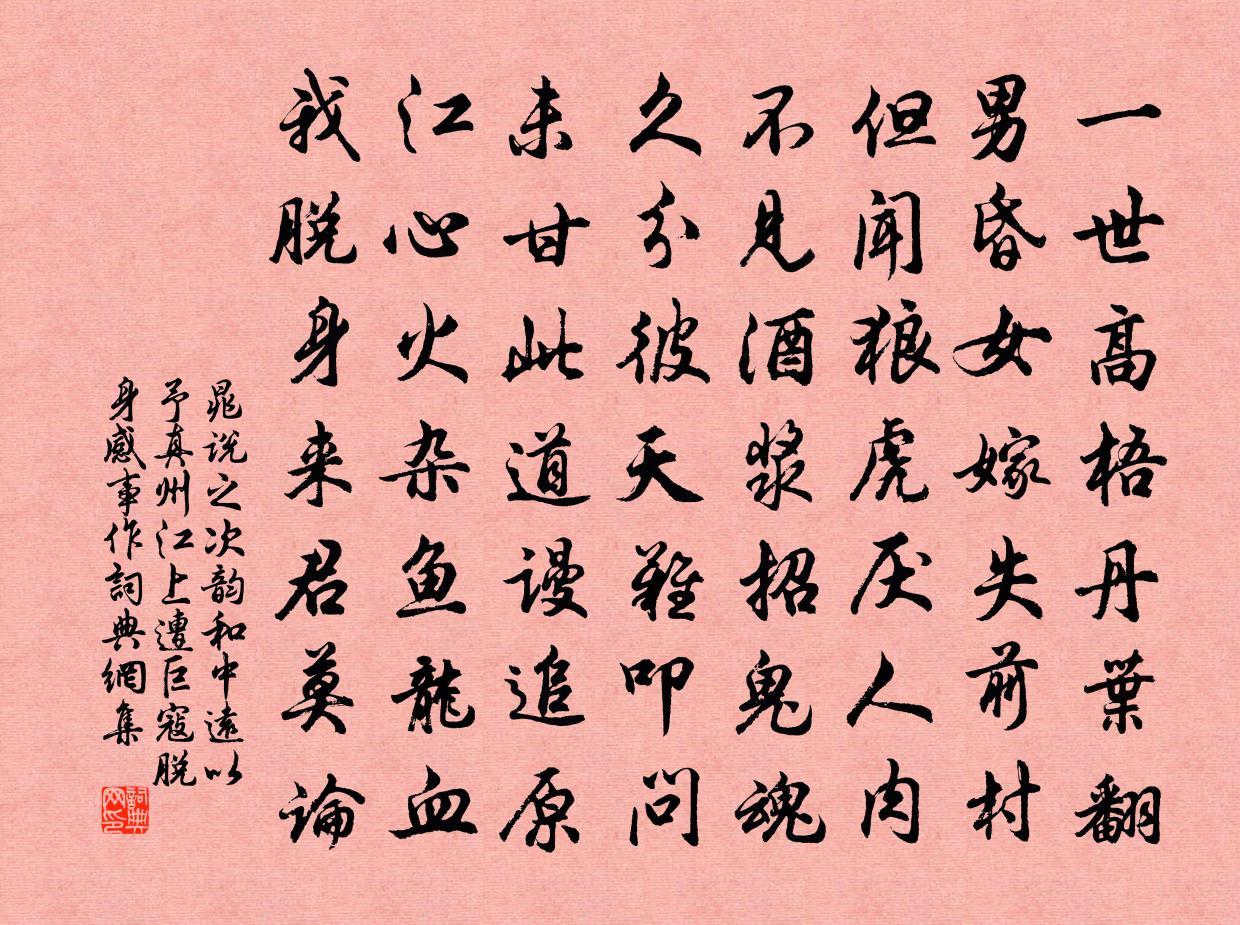 一世高梧丹葉翻
男昏女嫁失前村
但闻狼虎厌人肉
不見酒漿招鬼魂
久分彼天難叩问
未甘此道謾追原
江心火杂鱼龍血
我脱身来君莫論
晁说之次韵和中遠以
予真州江上遭巨寇脱
身感事作詞典網集
詞典
网印